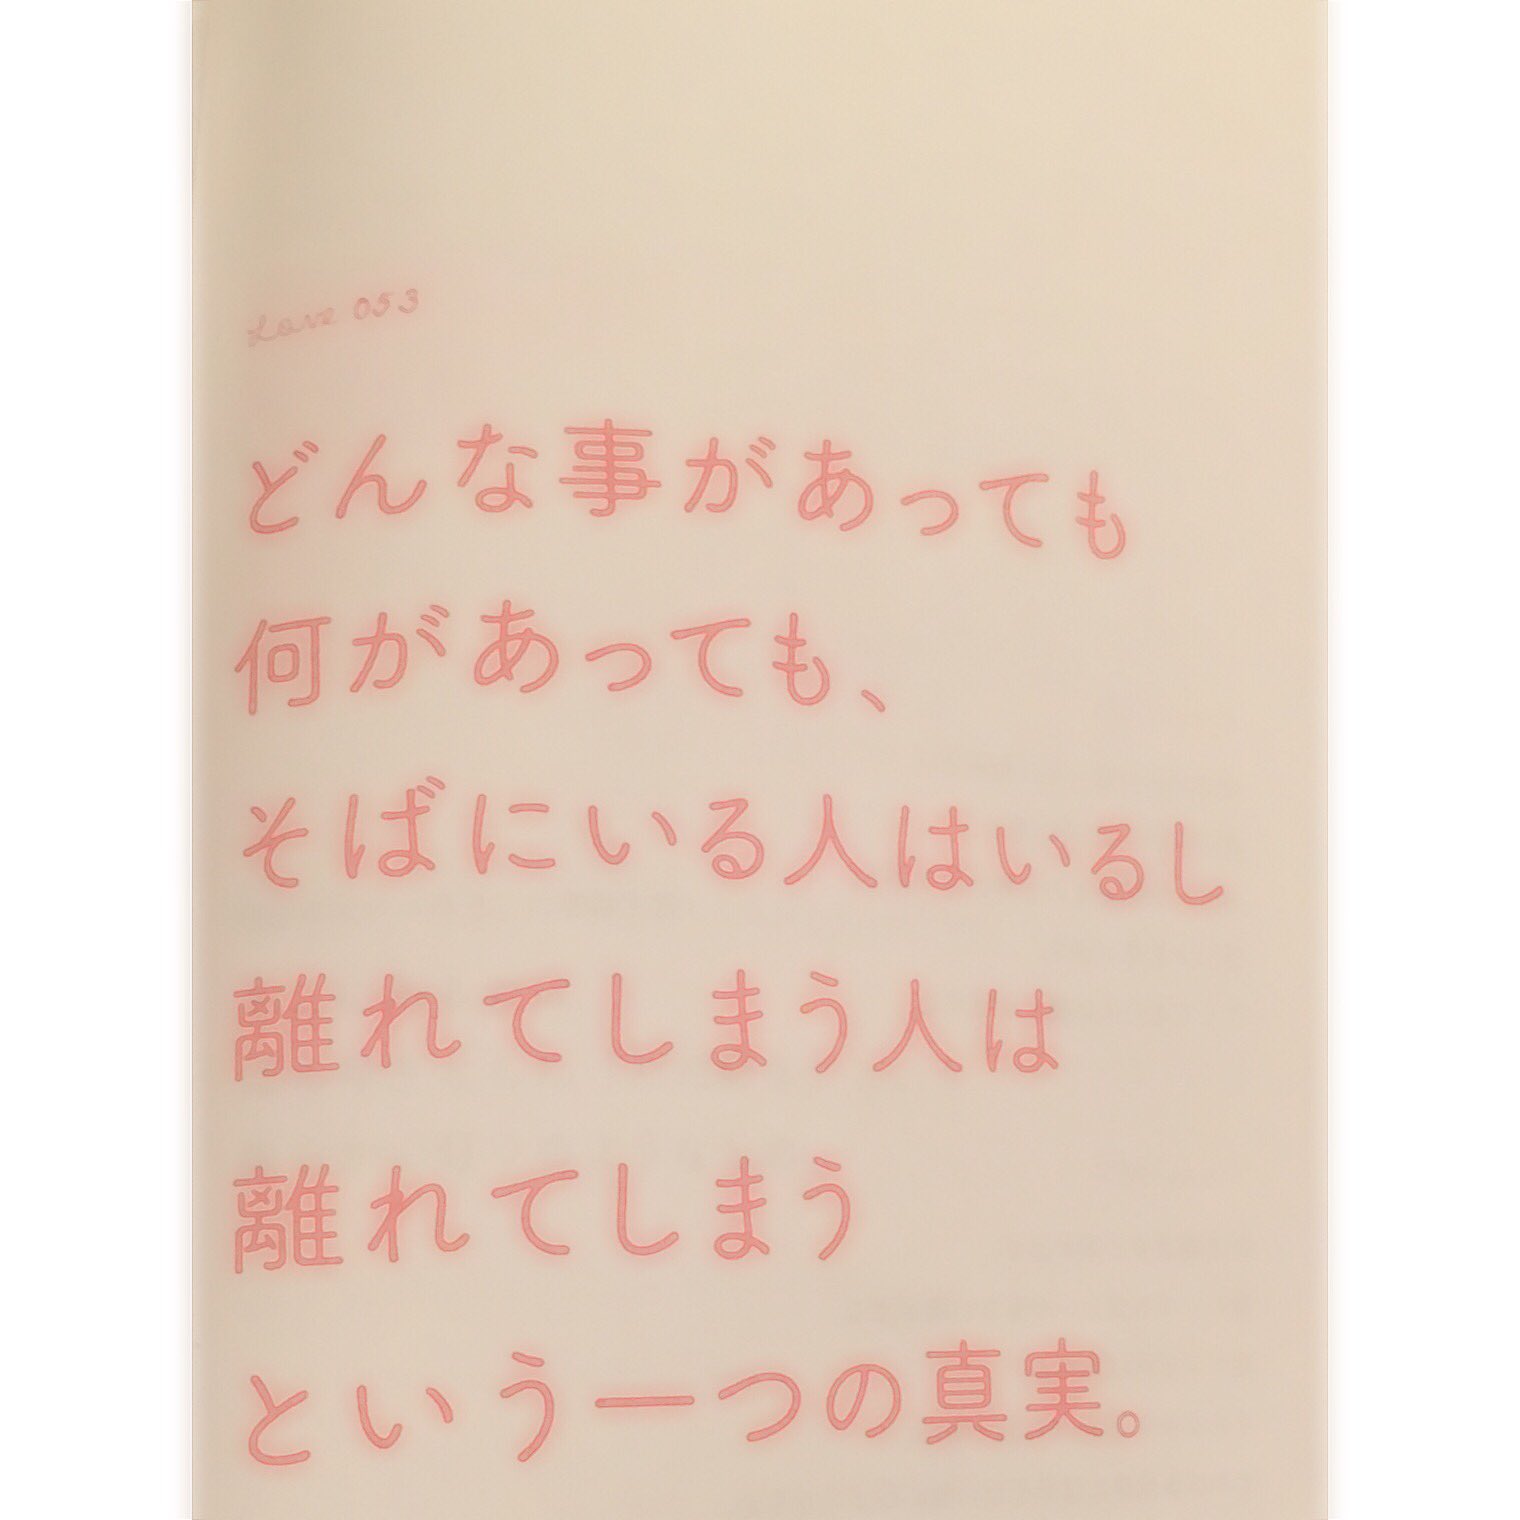 Love 053
どんな事があっても
何があっても、
そばにいる人はいるし
離れてしまう人は
離れてしまう
という一つの真実。